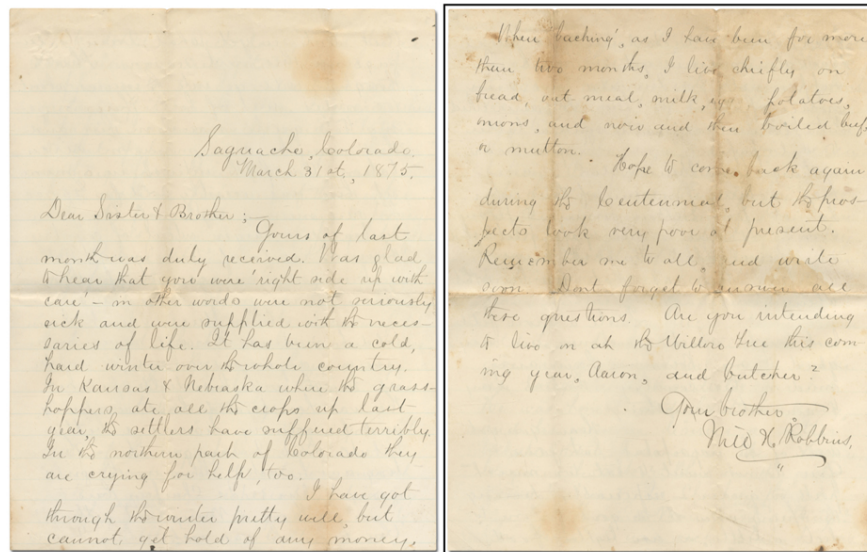 Saguache, Colorado.
March 31st, 1875.
Dear Sister & Brother;—
Yours of last
month was duly received. Was glad
to hear that you were 'right side up with
care' – in other words were not seriously
sick and were supplied with the neces-
saries of life. It has been a cold,
hard winter over the whole country.
In Kansas & Nebraska where the grass-
hoppers ate all the crops up last
year, the settlers have suffered terribly.
In the northern part of Colorado they
are crying for help, too.
I have got
through the winter pretty well, but
cannot get hold of any money,
When 'baching', as I have been for more
than two months, I live chiefly on
bread, oat meal, milk, potatoes,
onions, and now and then boiled beef
or mutton.
Hope to come back again
during the Centennial, but the pros-
pects look very poor at present.
Remember me to all, and write
soon. Dont forget to answer all
these questions. Are you intending
to live on at the Willow Tree this com-
ing year, Aaron, and butcher?
Your brother,
Milo H. Robbins,